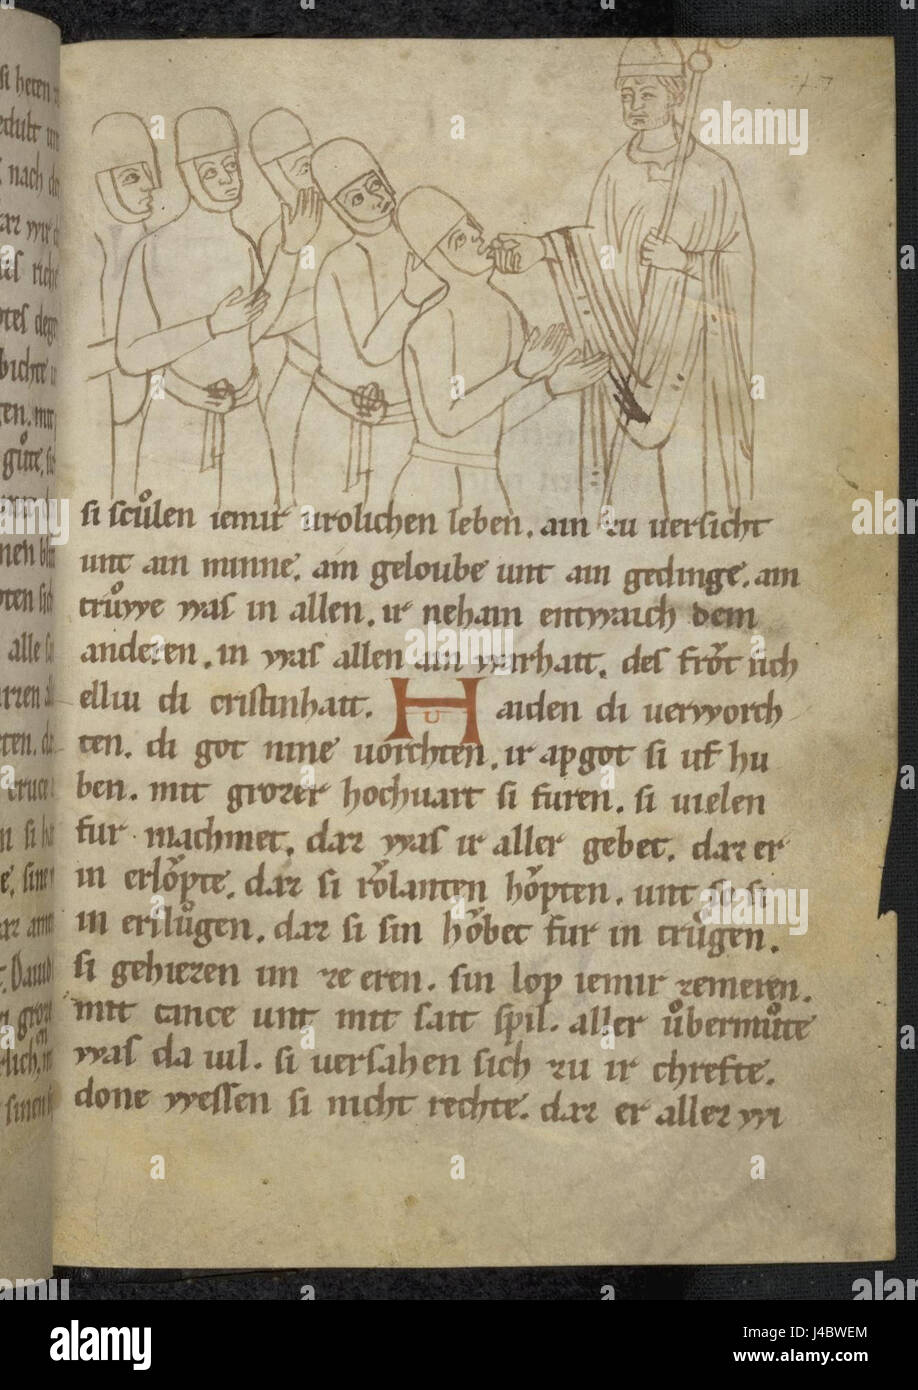 47
si scůlen iemir urolichen leben. ain zu uersicht
unt ain minne. ain geloube unt ain gedinge. ain
trůwe was in allen. ir nehain entwaich dem
anderen. in was allen ain warhait. des frŏt sich
elliu di cristinhait. Haiden di uerworch
ten. di got nine uorchten. ir apgot si uf hu
ben. mit grozer hochuart si furen. si uielen
fur machmet. daz was ir aller gebet. daz er
in erlŏpte. daz si rŏlanten hŏpten. unt so si
in erslůgen. daz si sin hŏbet fur in trůgen.
si gehiezen im ze eren. sin lop iemir ze meren.
mit tance unt mit sait spil. aller ůbermůte
was da uil. si uersahen sich zu ir chrefte.
done wessen si nicht rechte. daz er aller wi
si heten
nach
alle
sinen
alamy stock photo
a
alamy
J4BWEM
www.alamy.com